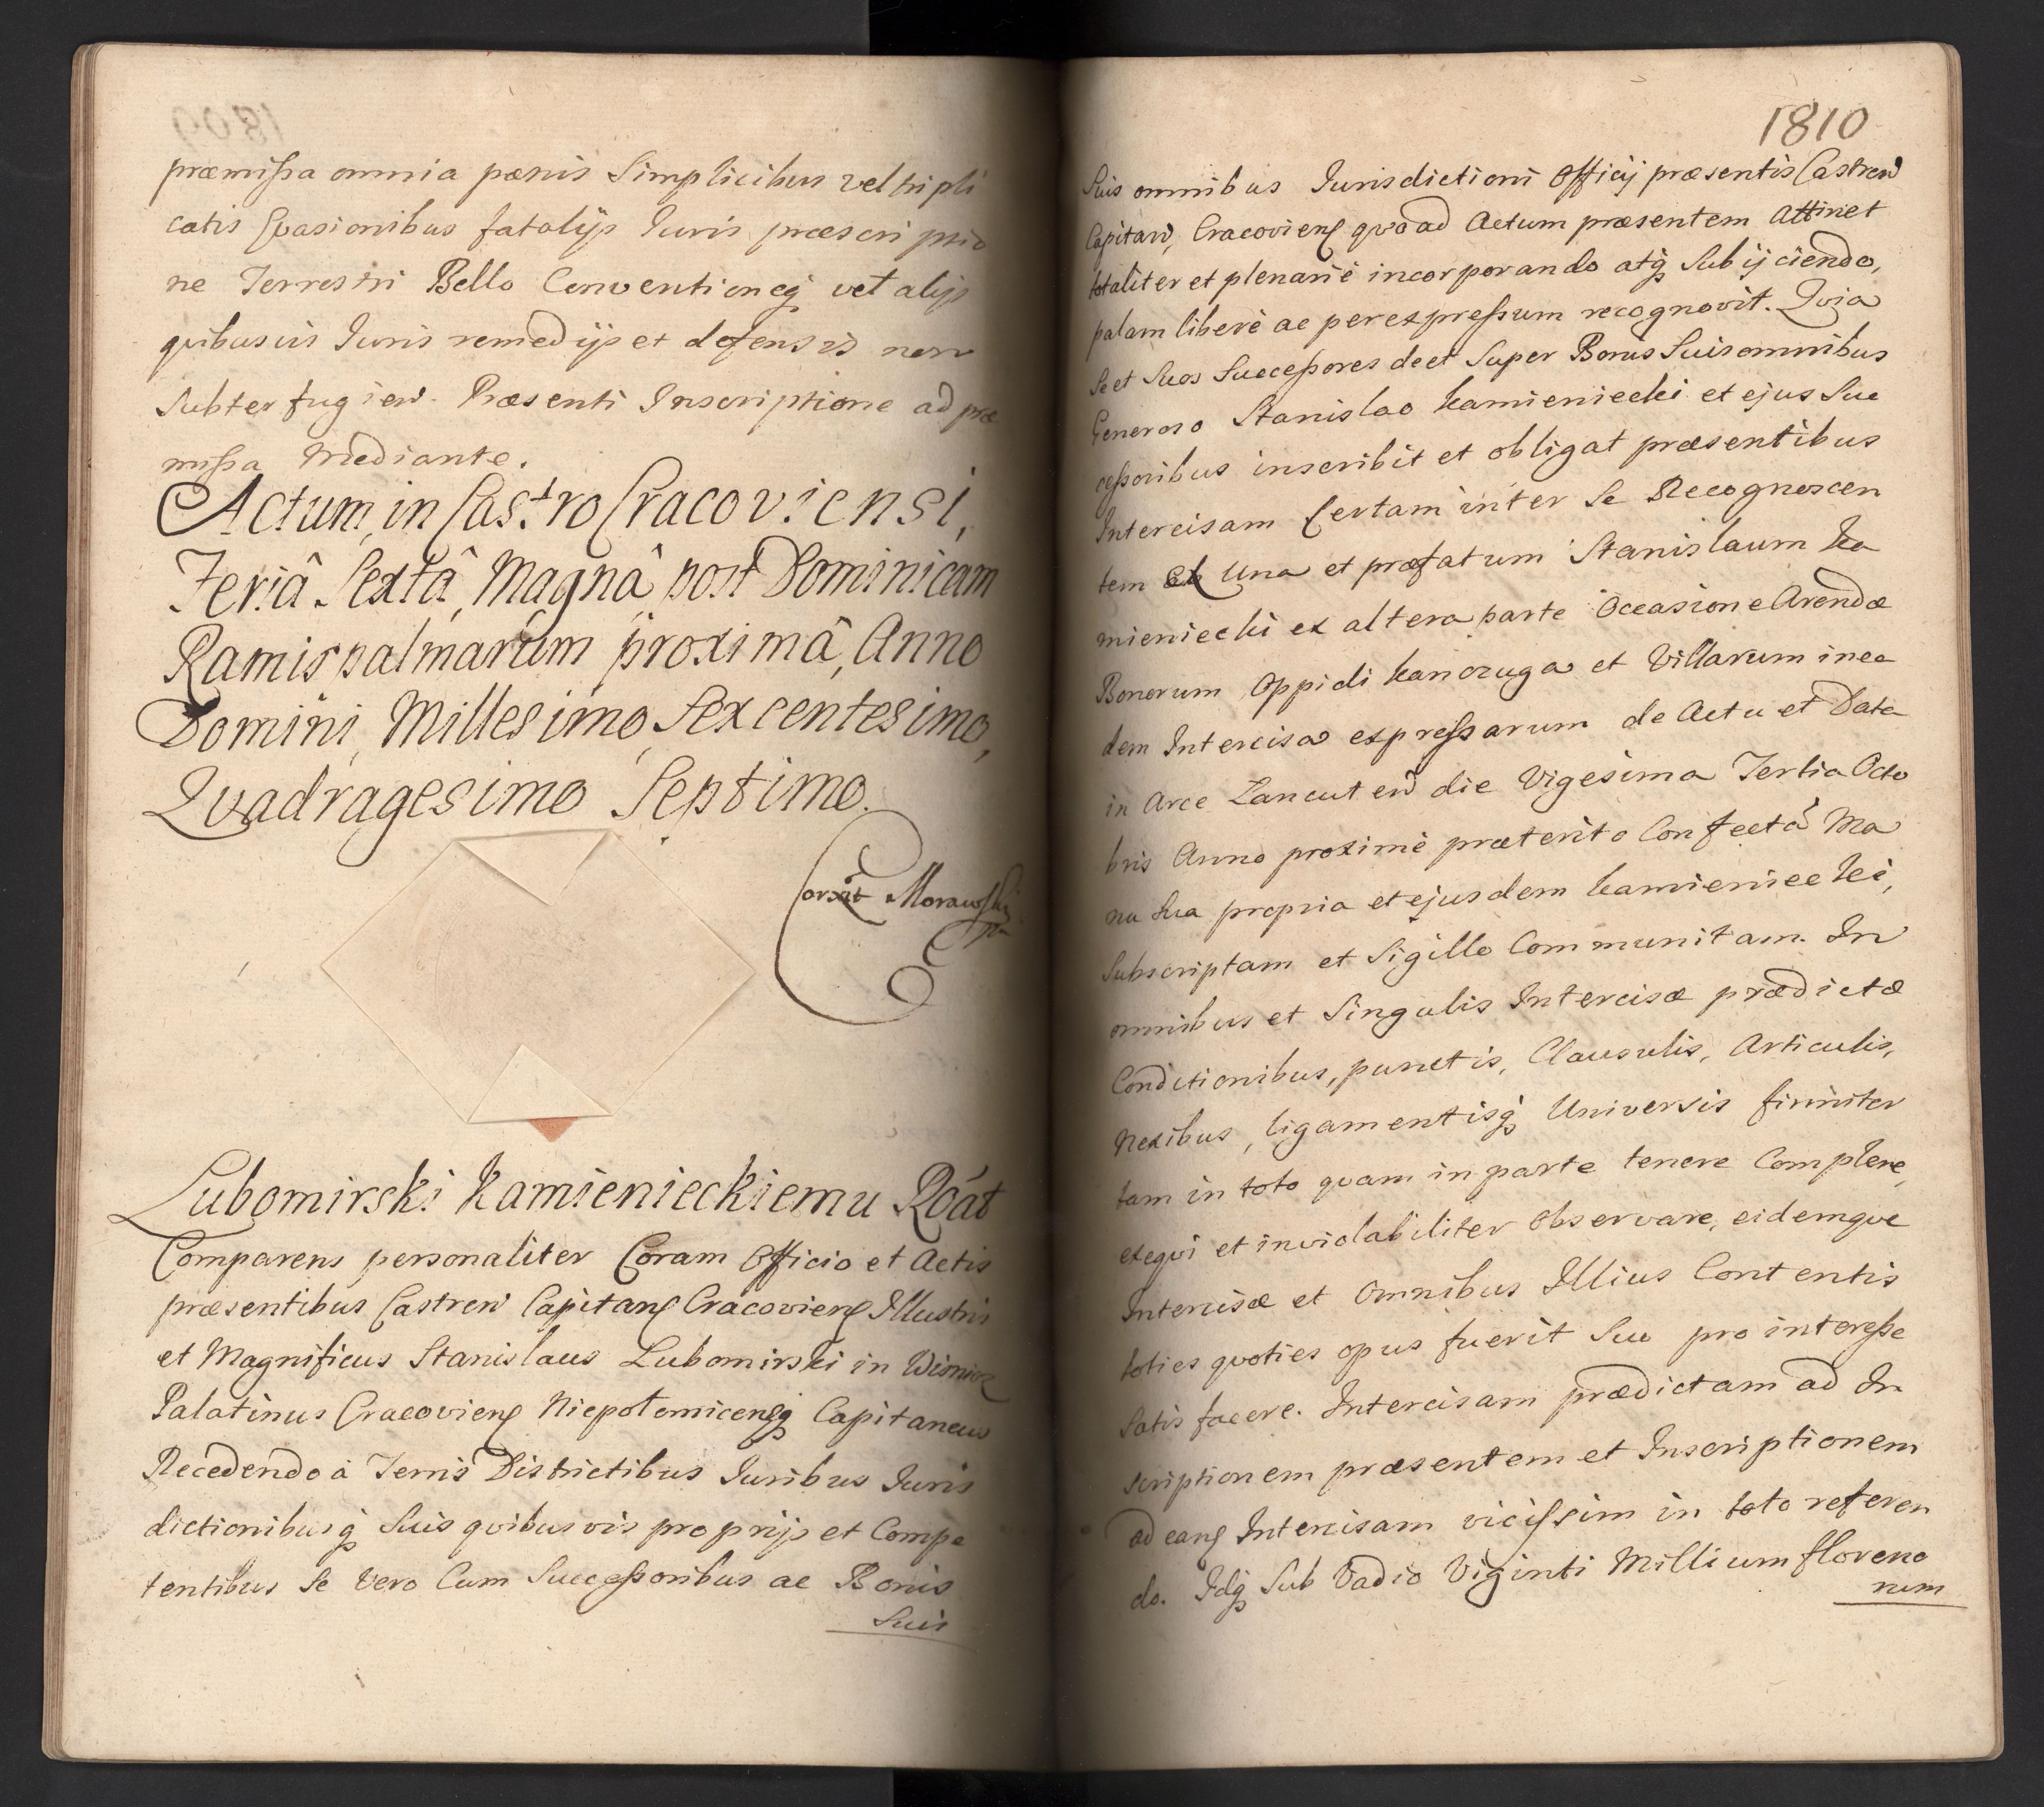 præmissa omnia pænis Simplicibus vel tripli
catis Evasionibus fatalijs Iuris præscriptio
ne Terrestri Bello Conventioneq vel alijs
quibusvis Iuris remedijs et defensis non
Subterfugien. Præsenti Inscriptione ad præ
missa Mediante.
Actum, in Castro Cracoviensi,
Feriâ Sextâ, Magnâ post Dominicam
Ramispalmarum proximâ, Anno
Domini, Millesimo, Sexcentesimo,
Quadragesimo Septimo.
Corxit Morawski
Lubomirski Kamienieckiemu Roát
Comparens personaliter Coram Officio et Actis
præsentibus Castren Capitan Cracovien Illustris
et Magnificus Stanislaus Lubomirski in Wisnicz
Palatinus Cracovien Niepolomicensq Capitaneus
Recedendo à Terris Districtibus Iuribus Iuris
dictionibusq Suis quibusvis proprijs et Compe
tentibus Se vero Cum Successoribus ac Bonis
Suis
1810
Suis omnibus Iurisdictioni Officij præsentis Castren
Capitan, Cracovien quoad Actum præsentem Attinet
totaliter et plenariè incorporando atq Subijciendo,
palam liberè ac per expressum recognovit. Quia
Se et Suos Successores de et Super Bonis Suis omnibus
Generoso Stanislao Kamieniecki et ejus Suc
cessoribus inscribit et obligat præsentibus
Intercisam Certam inter Se Recognoscen
tem Ex Una et præfatum Stanislaum Ka
mieniecki ex altera parte Occasione Arendæ
Bonorum Oppidi Kanczuga et Villarum in ea
dem Intercisa expressarum de Actu et Data
in Arce Lancuten die Vigesima Tertia Octo
bris Anno proximè præterito Confectâ Ma
nu Sua propria et ejusdem Kamieniecki,
Subscriptam et Sigillo Communitam. In
omnibus et Singulis Intercisæ prædictæ
Conditionibus, punctis, Clausulis, Articulis,
Nexibus, ligamentisq Universis firmiter
tam in toto quam in parte tenere Complere,
exequi et inviolabiliter observare, eidemque
Intercisæ et Omnibus Illius Contentis
toties quoties opus fuerit Suo pro interesse
Satisfacere. Intercisam prædictam ad In
scriptionem præsentem et Inscriptionem
ad eam Intercisam vicissim in toto referen
do. Idq Sub Vadio Viginti Millium floreno
rum